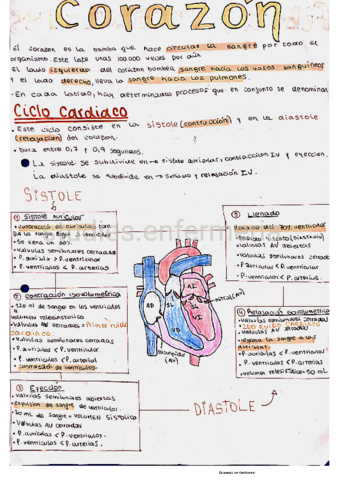 Corazón
El corazón es la bomba que hace circular la sangre por todo el
organismo. Este late unas 100.000 veces por día
El lado izquierdo del corazón bombea sangre hacia los vasos sanguíneos
y el lado derecho, lleva la sangre hacia los pulmones.
- En cada latido, hay determinados procesos que en conjunto se denominan
Ciclo Cardiaco
• Este ciclo consiste en la sistole (contracción) y en la diastole
(relajacion) del corazon.
• Dura entre 0,7 y 0,9 segundos.
La sistole se subdivide en → sistole auricular, contraccion I.V y eyeccion.
La diastole se subdivide en → llenado y relajacion I.V.
SÍSTOLE
① Sistole auricular
• contraccion de auriculas
la sangre
• Se llena un 30%.
• valvulas semilunares cerradas
• P. auricula > P. ventriculos
• P. ventriculos < P. arterias
② Contracción isovolumétrica
• 120 ml de sangre en los ventriculos
volumen telediastolico
• valvulas AV cerradas = Primer ruido
cardiaco.
• Valvulas semilunares cerradas
• P. auriculas < P. ventricular
• P. ventriculos < P. arterial
• contracción de ventriculos
③ Eyeccion
• valvulas semilunares abiertas
• Expulsion de sangre de ventricular.
70 ml de sangre = VOLUMEN SISTOLICO
• Válvulas AV cerradas
• P. auriculas < P. ventriculos.
• P. ventriculos < P. arterias.
③ Llenado
• Llenado del 70% ventricular
• Válvulas AV abiertas
• Válvulas semilunares cerradas
• P. auricular < P. ventricular
• P. ventriculos < P. arterias.
④ Relajación isovolumétrica
• valvulas semilunares cerradas
2do ruido CARDIACO
• valvulas AV cerradas
• Ingresa la sangre a las
auriculas
• P. auriculas < P. ventricular
• P. ventriculos < P. arterial
• volumen telesistolico = 50 ml
AD
AI
VI
VD
(AV)
DIASTOLE